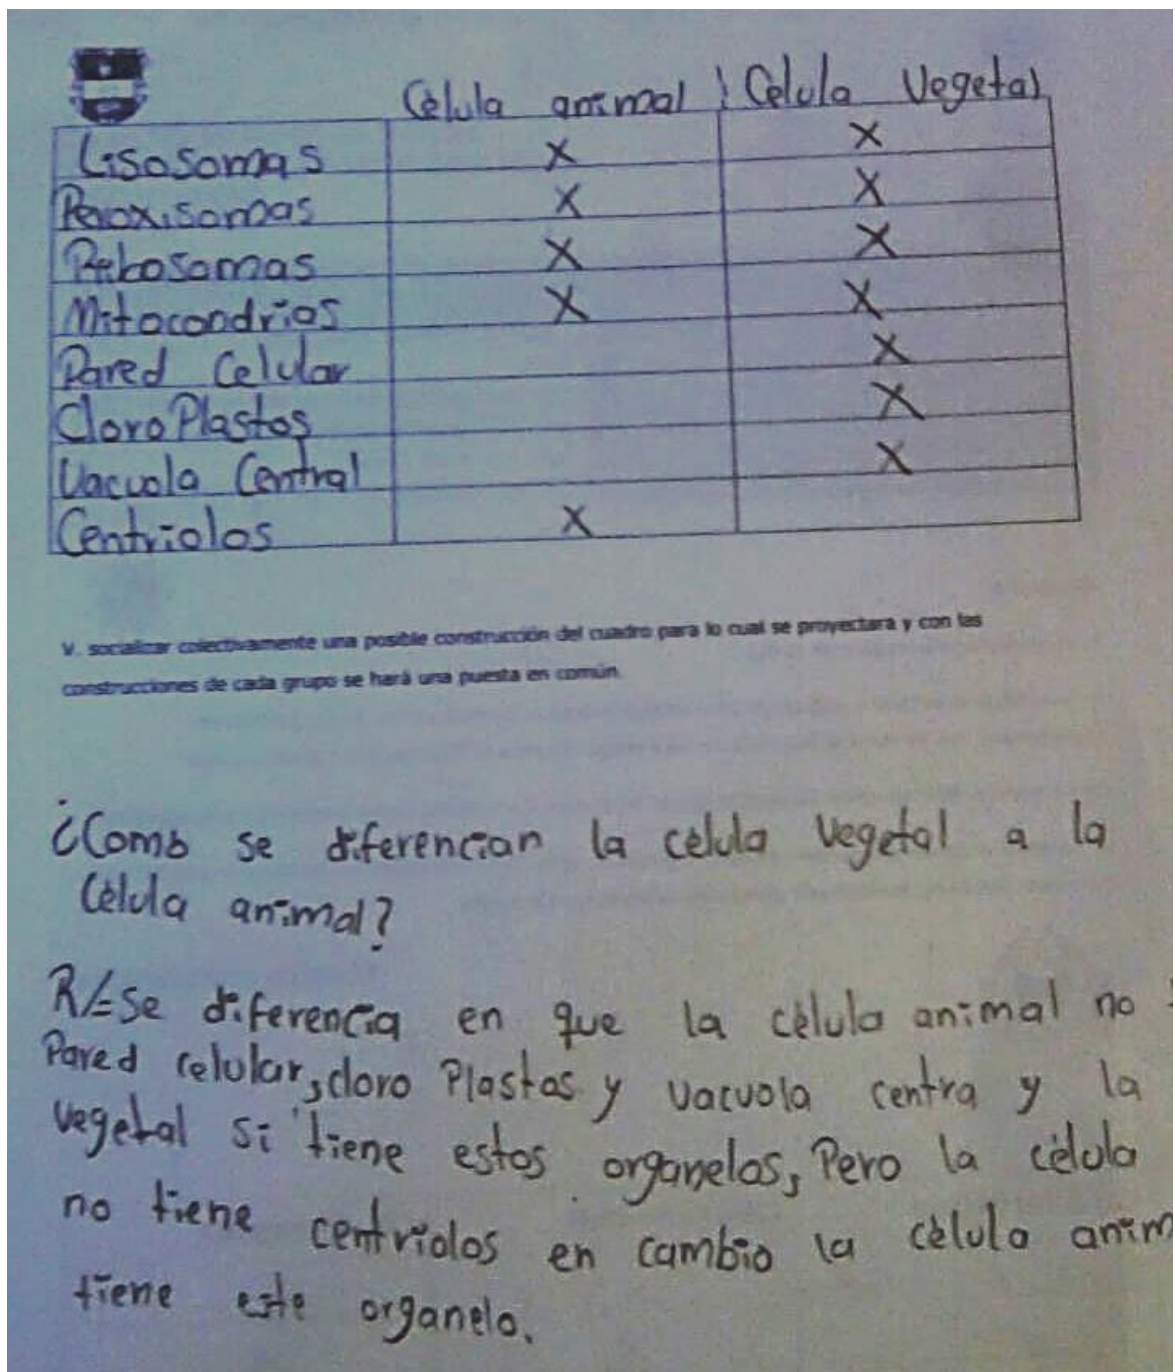 Célula animal Célula Vegetal
Lisosomas X X
Peroxisomas X X
Ribosomas X X
Mitocondrios X X
Pared Celular X
CloroPlastos X
Vacuola Central X
Centriolos X
V. socializar colectivamente una posible construcción del cuadro para lo cual se proyectara y con las
construcciones de cada grupo se hará una puesta en común.
¿Como se diferencian la célula vegetal a la
Célula animal?
R/=Se diferencia en que la célula animal no
Pared celular, cloro Plastos y vacuola centra y la
vegetal si tiene estos organelos, Pero la célula
no tiene centriolos en cambio la célula anim
tiene este organelo.